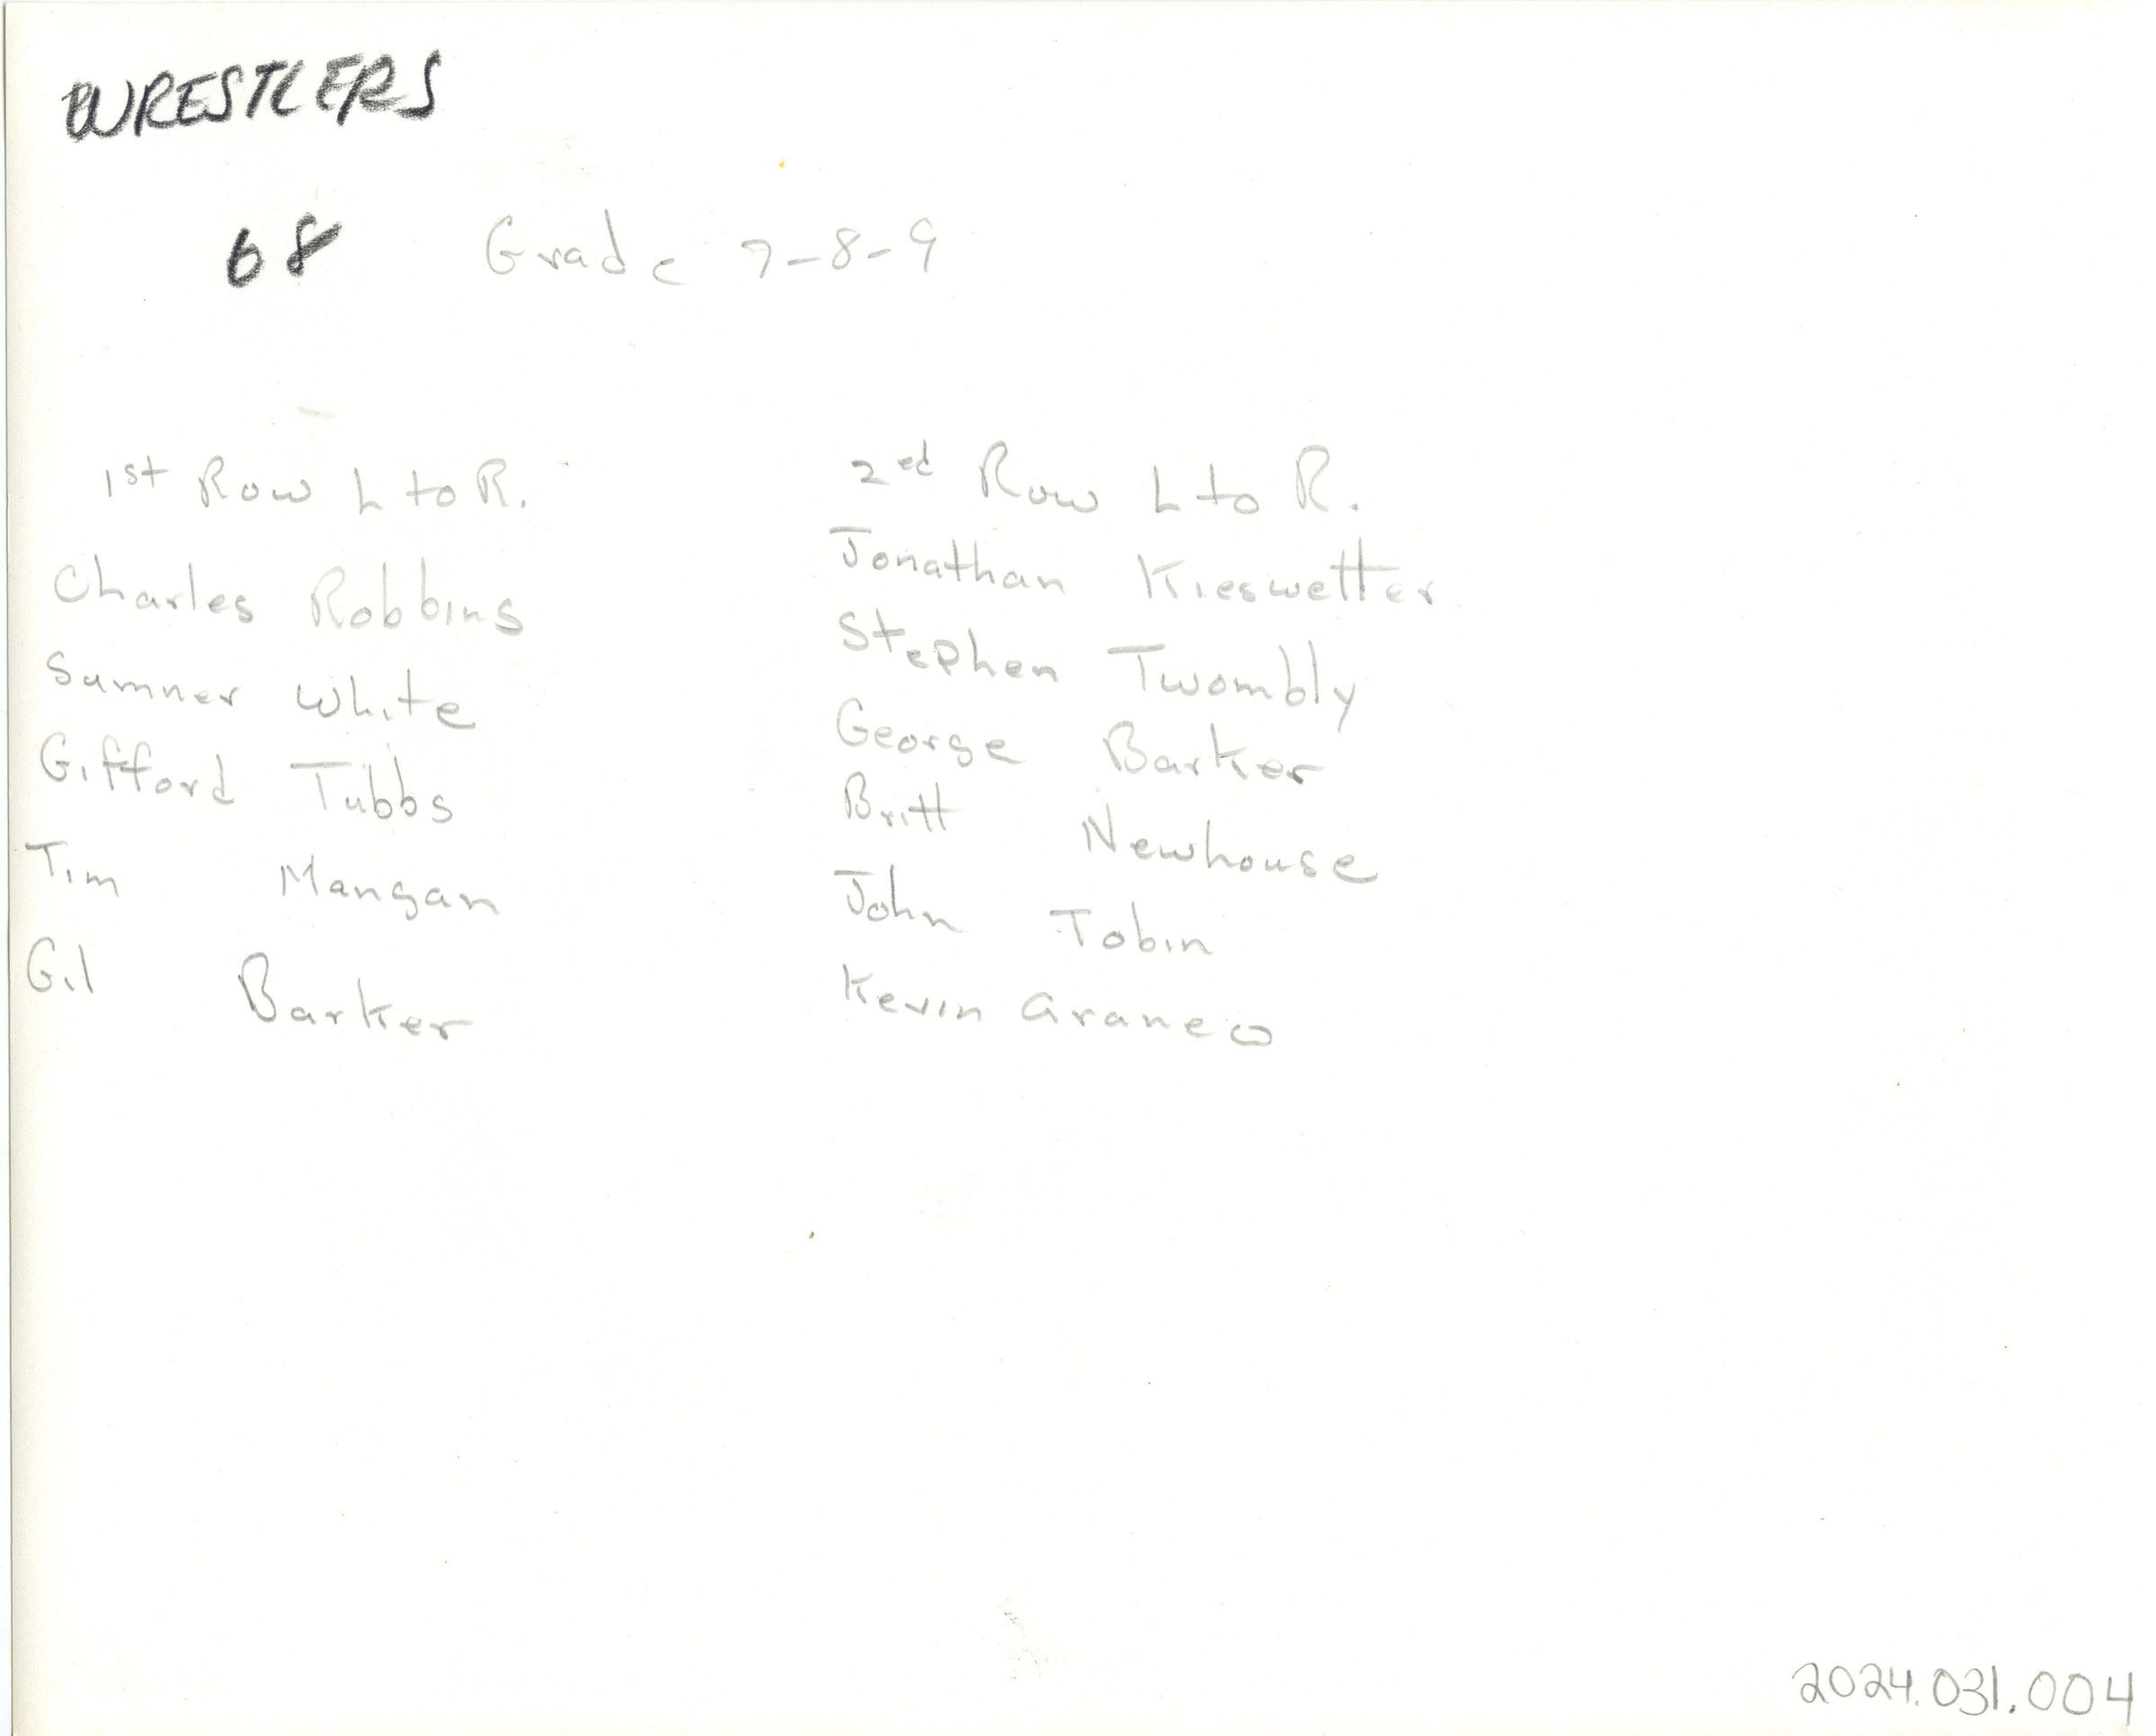 WRESTLERS
68 Grade 7-8-9
1st Row L to R.
Charles Robbins
Sumner White
Gifford Tubbs
Tim Mangan
Gil Barker
2ed Row L to R.
Jonathan Kieswetter
Stephen Twombly
George Barker
Britt Newhouse
John Tobin
Kevin
2024.031.004